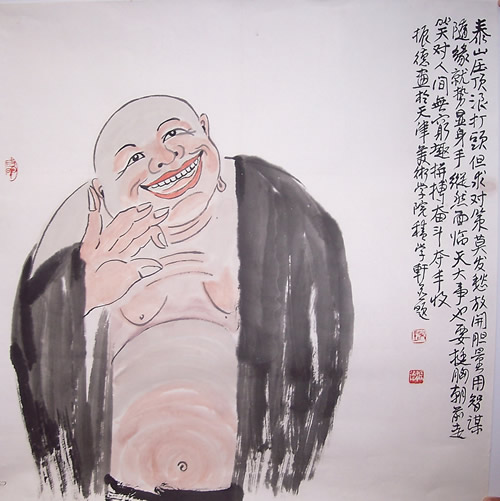 泰山压顶浪打头但求对策莫发愁放開胆量用智谋
随缘就势显身手纵然面临天大事也要挺胸朝前走
笑对人间無穷趣拼搏奋斗夺丰收
振德画於天津美術学院積学軒又题